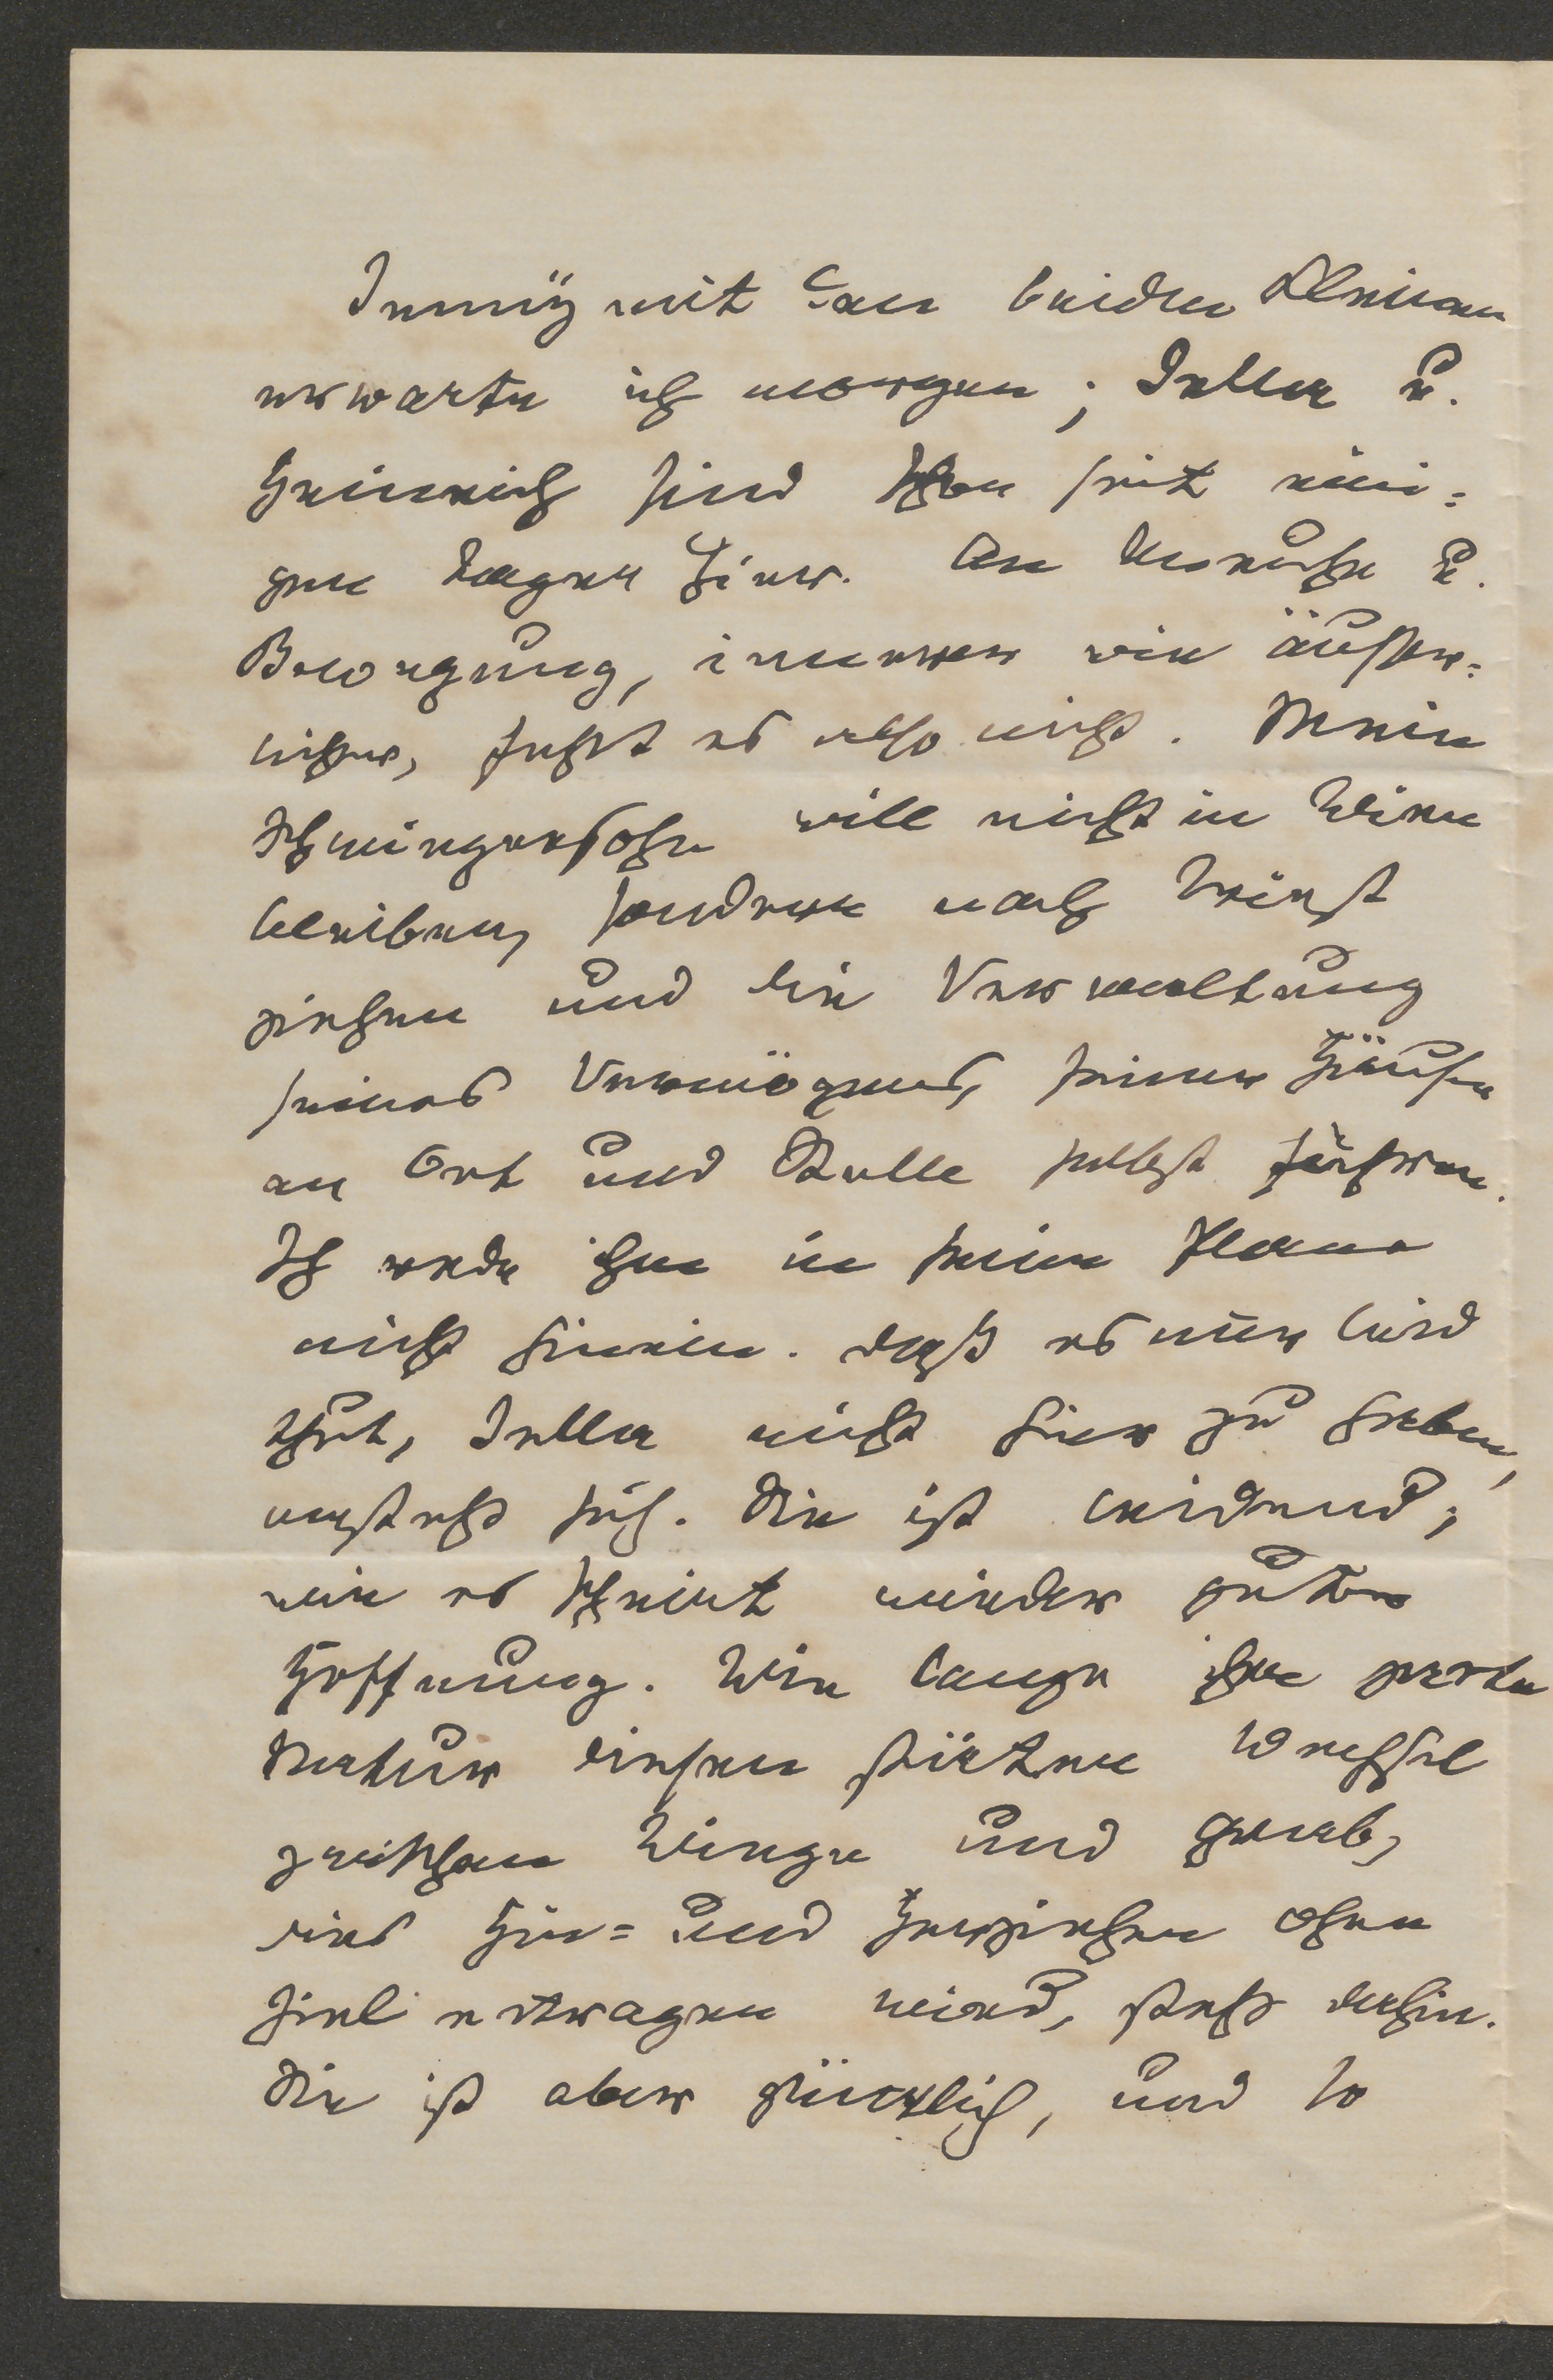 Jenny mit den beiden Kleinen
erwarte ich morgen; Bella u.
Heinrich sind schon seit eini=
gen Tagen hier. An Unruhe u.
Bewegung, innerer wie äußer=
licher, fehlt es also nicht. Mein
Schwiegersohn will nicht in Wien
bleiben, sondern nach Triest
ziehen und die Verwaltung
seines Vermögens, seiner Häuser
an Ort und Stelle selbst führen.
Ich rede ihm in seine Plane
nicht hinein. Daß es mir leid
thut, Bella nicht hier zu haben,
versteht sich. Sie ist leidend;
wie es scheint wieder guter
Hoffnung. Wie lange ihre zarte
Natur diesen steten Wechsel
zwischen Wiege und Grab,
dies Hin= und Herziehen ohne
Ziel ertragen wird, steht dahin.
Sie ist aber glücklich, und so